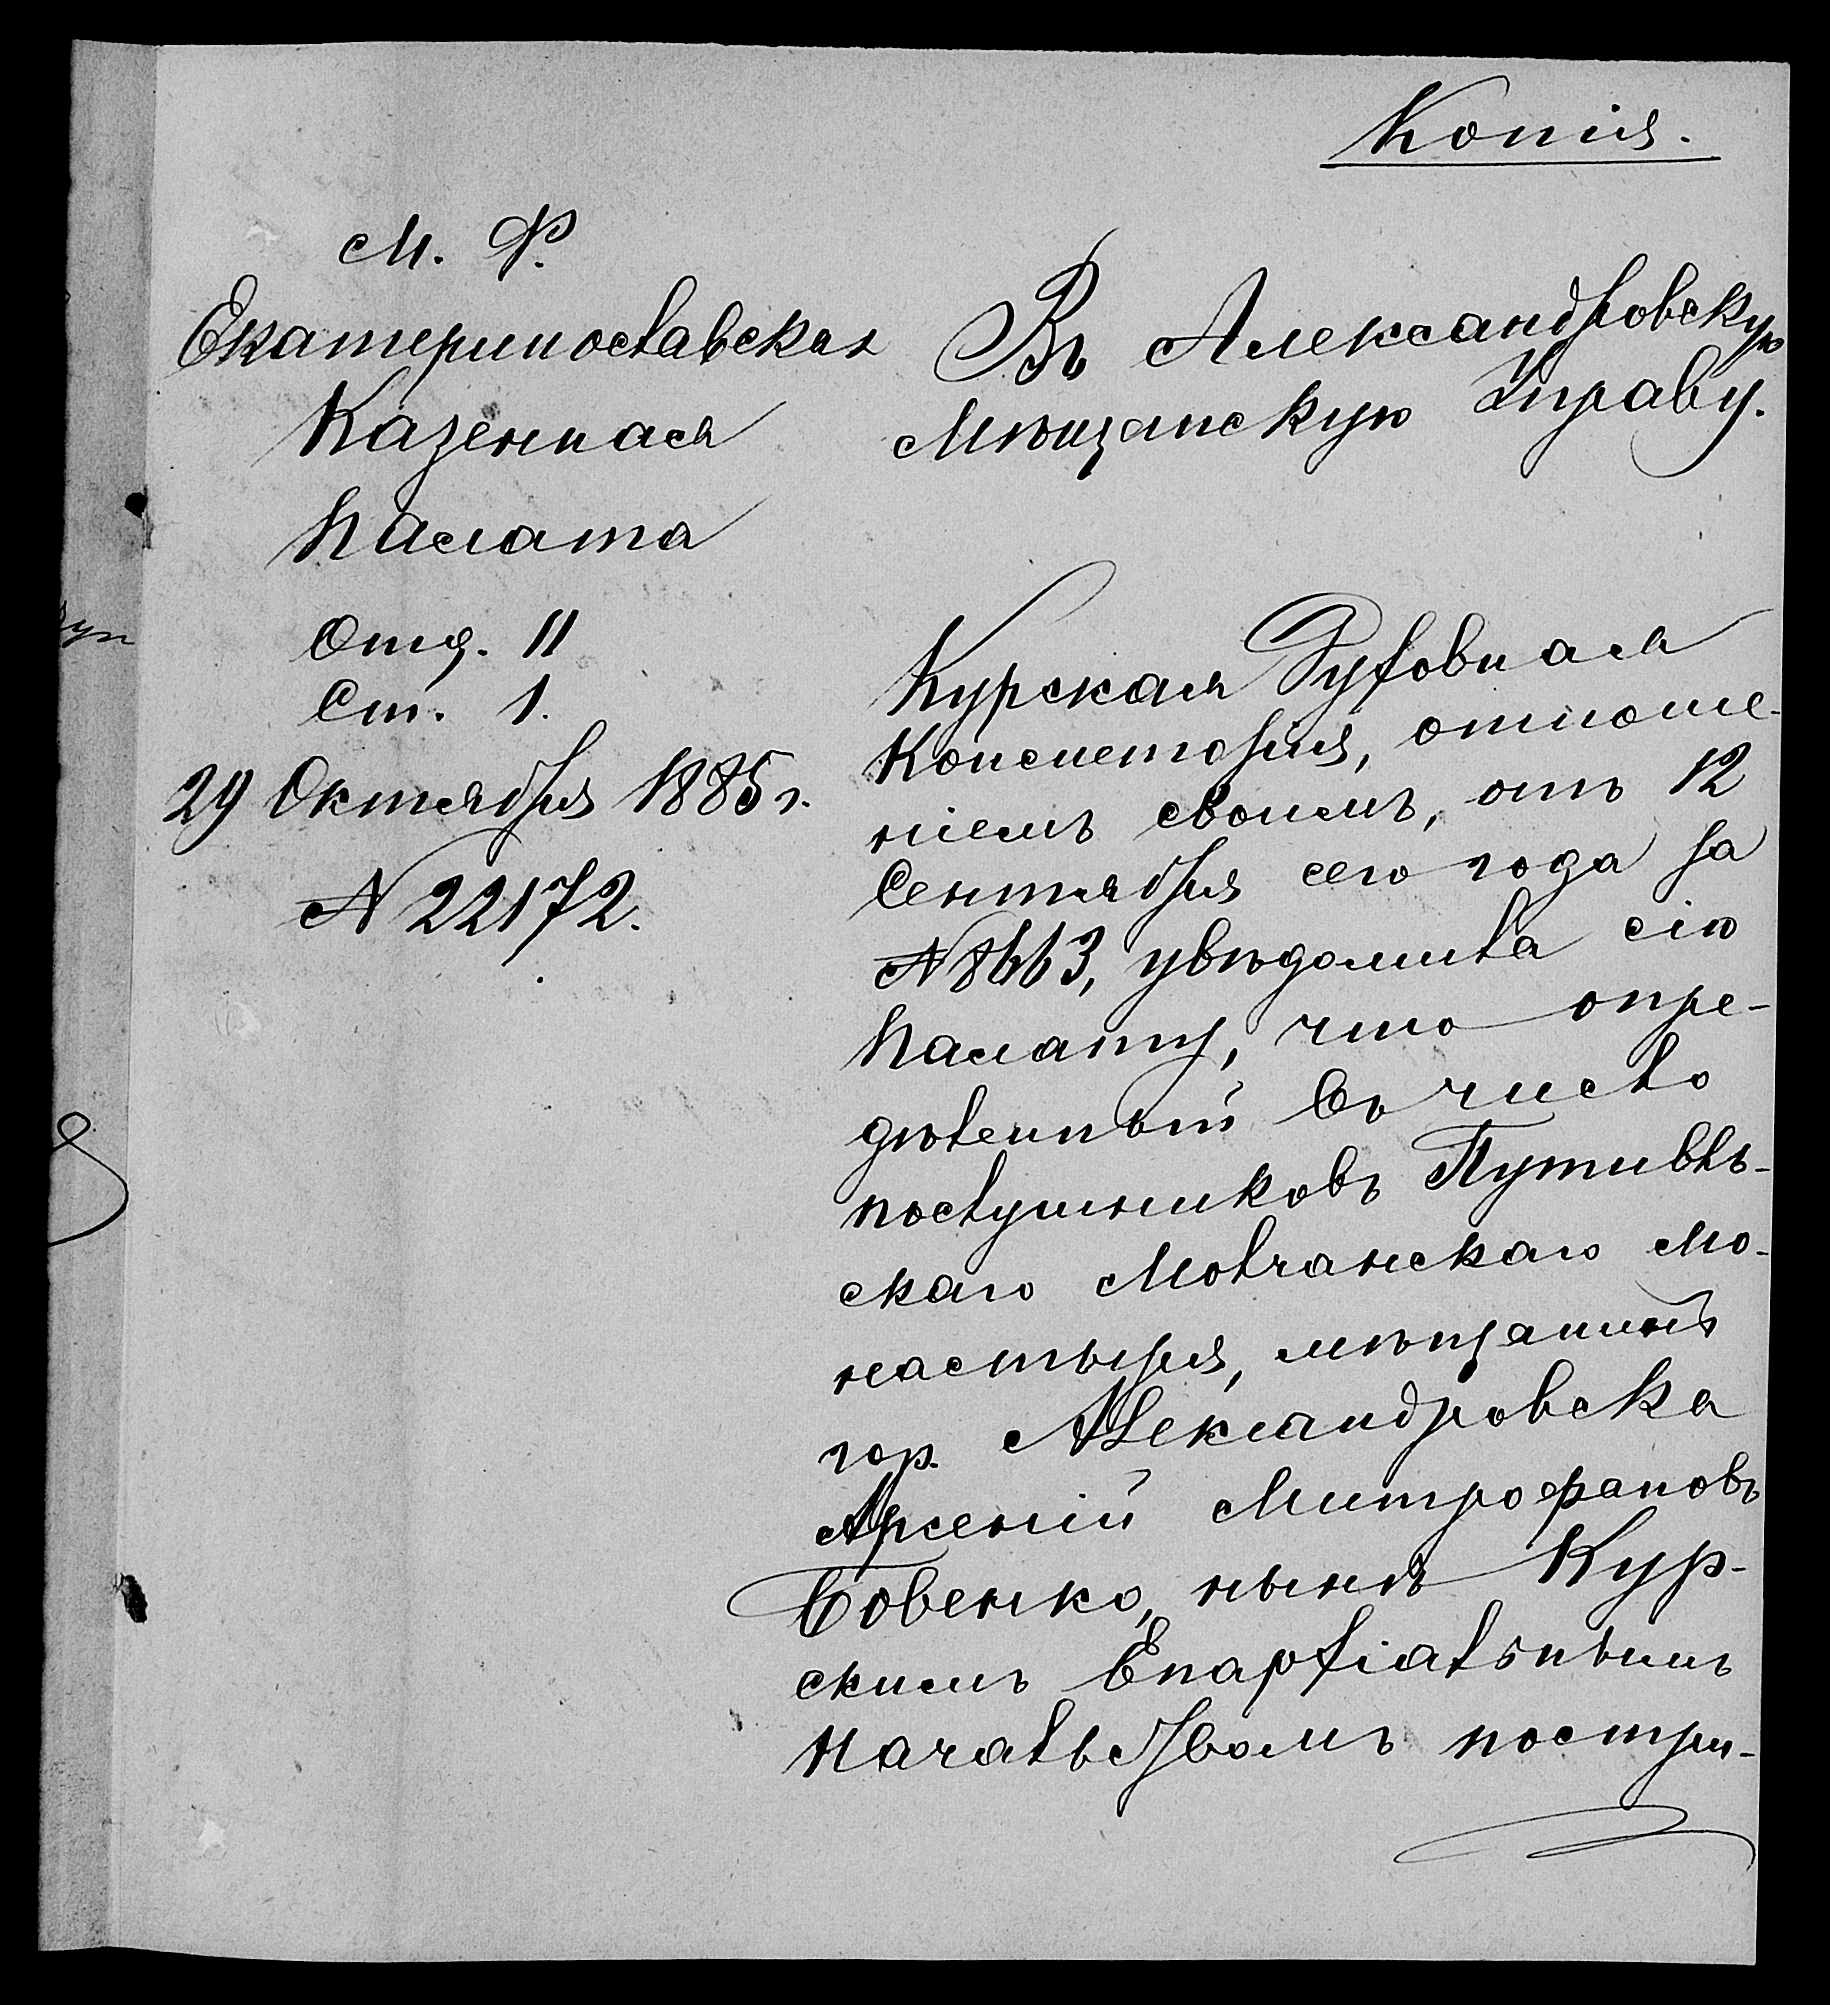 Копія.
М. Ф.
Екатеринославская
Казенная
Палата
Отд. II
Ст. 1.
29 Октября 1885 г.
№ 22172.
Въ Александровскую
Мѣщанскую Управу.
Курская Духовная
Консисторія, отноше-
ніемъ своимъ, отъ 12
Сентября сего года за
№ 8663, увѣдомила сію
Палату, что опре-
дѣленный въ число
послушниковъ Путивль-
скаго Молчанскаго мо-
настыря, мѣщанинъ
гор. Александровска
Арсеній Митрофановъ
Бовенко, нынѣ Кур-
скимъ Епархіальнымъ
Начальствомъ постри-